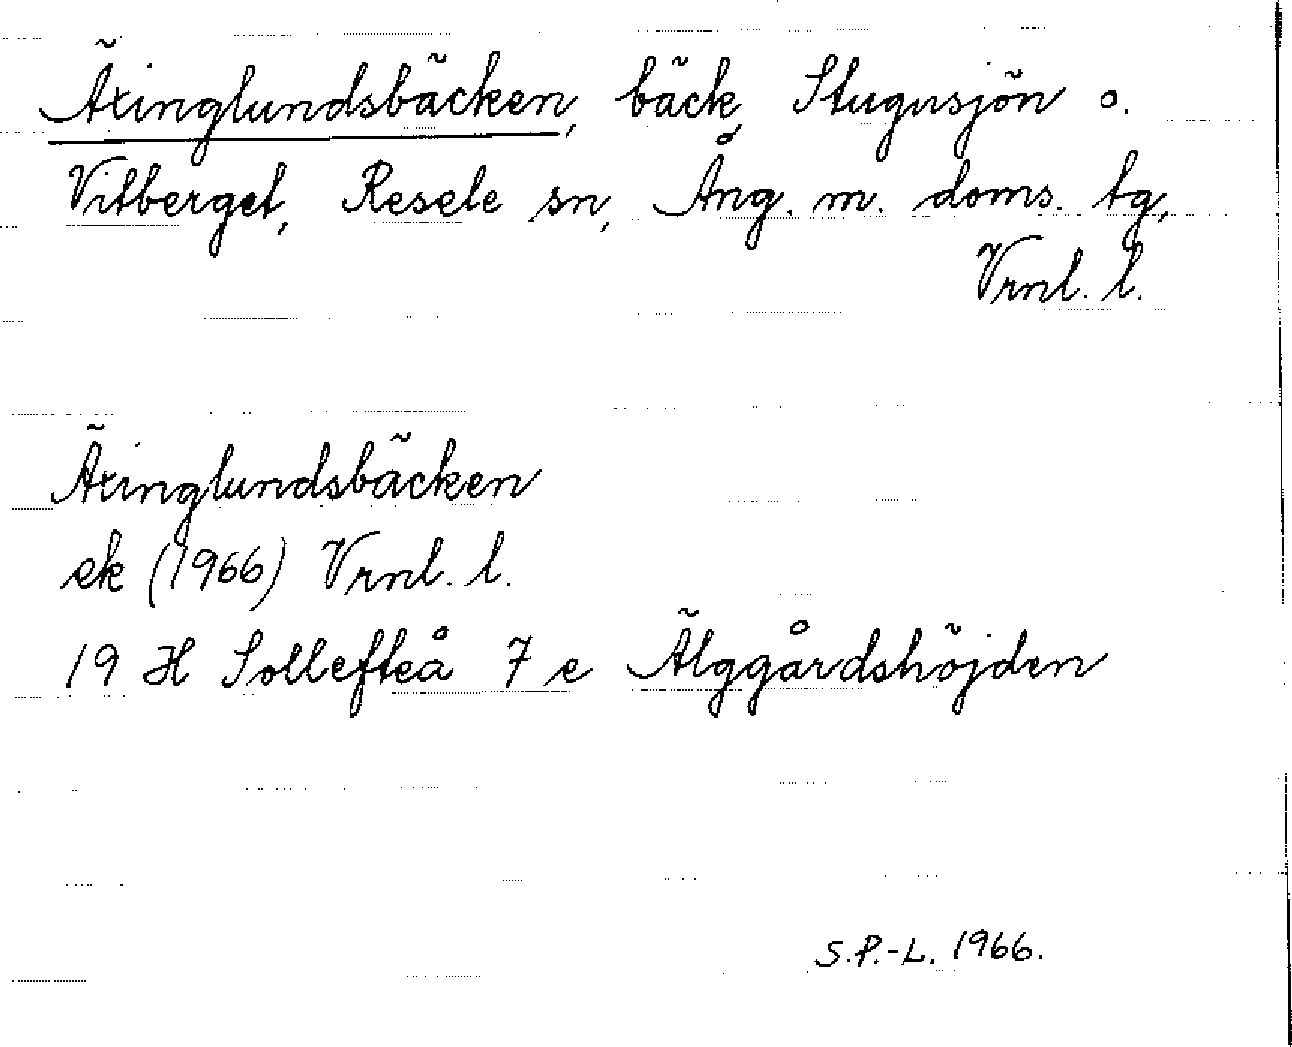 Äxinglundsbäcken, bäck, Stugusjön o.
Vitberget, Resele sn, Ång. m. doms. tg,
Vrnl. l.
Äxinglundsbäcken
ek (1966) Vrnl. l.
19 H Sollefteå 7 e Älggårdshöjden
S.P.-L. 1966.